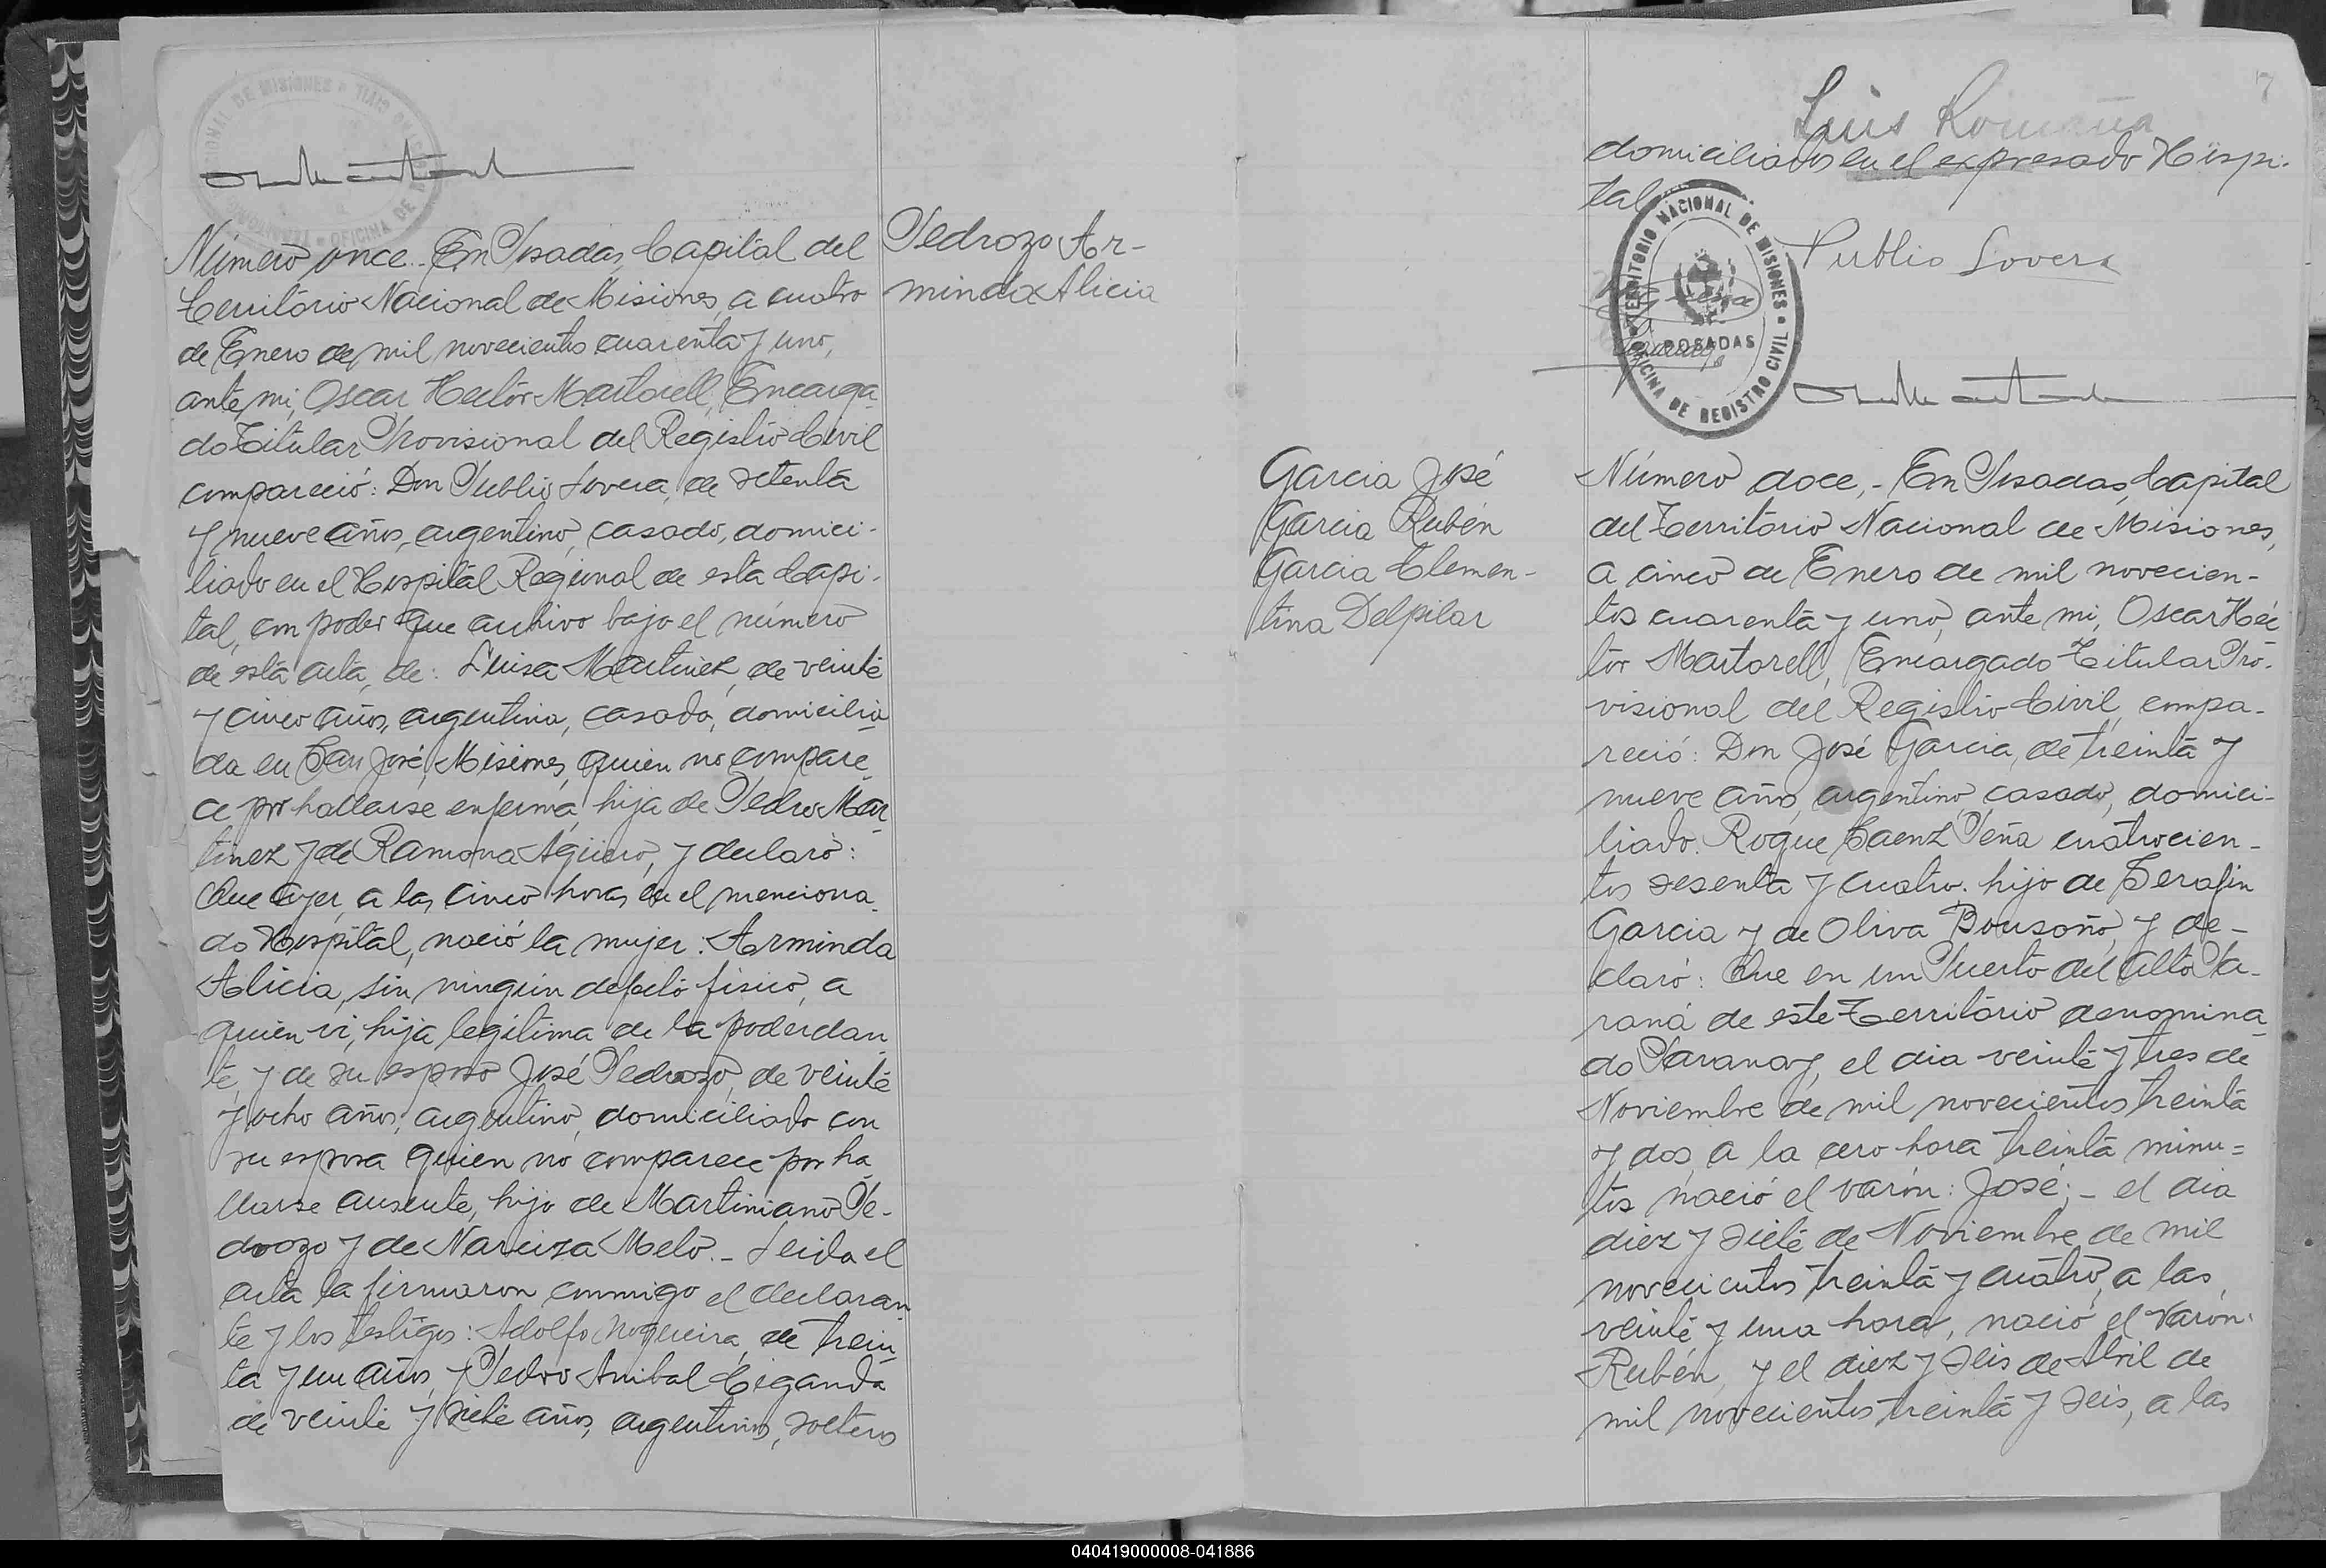 Número once.- En Posadas, Capital del
Territorio Nacional de Misiones, a cuatro
de Enero de mil novecientos cuarenta y uno,
ante mi, Oscar Hector Martorell, Encarga-
do Titular Provisional del Registro Civil
compareció: Don Publio Lovera, de setenta
y nueve años, argentino, casado, domici-
liado en el Hospital Regional de esta Capi-
tal, con poder que archivo bajo el número
de esta acta, de: Luisa Martinez, de veinte
y cinco años, argentina, casada, domicilia-
da en San José, Misiones, quien no compare-
ce por hallarse enferma, hija de Pedro Mar-
tinez y de Ramona Agüero, y declaró:
Que ayer, a las cinco horas en el menciona-
do Hospital, nació la mujer: Arminda
Alicia, sin ningún defecto fisico, a
quien vi, hija legitima de la poderdan-
te, y de su esposo José Pedrozo, de veinte
y ocho años, argentino, domiciliado con
su esposa quien no comparece por ha
llarse ausente, hijo de Martiniano Pe-
drozo y de Narciza Melo.- Leida el
acta la firmaron conmigo el declaran-
te y los testigos: Adolfo Nogueira, de trein-
ta y un años, y Pedro Anibal Ciganda
de veinte y siete años, argentinos, solteros
Pedrozo Ar-
minda Alicia
7
Luis Romaña
domiciliados en el expresado Hospi-
tal
TERRITORIO NACIONAL DE MISIONES
POSADAS
OFICINA DE REGISTRO CIVIL
Publio Lovera
Garcia José
Garcia Rubén
Garcia Clemen-
tina Delpilar
Número doce,- En Posadas, Capital
del Territorio Nacional de Misiones,
a cinco de Enero de mil novecien-
tos cuarenta y uno, ante mi, Oscar Héc
tor Martorell, Encargado Titular Pro-
visional del Registro Civil, compa-
reció: Don José Garcia, de treinta y
nueve años, argentino, casado, domici-
liado. Roque Saenz Peña cuatrocien-
tos sesenta y cuatro. hijo de Serafin
Garcia y de Oliva Bousoño, y de-
claró: Que en un Puerto del Alto Pa-
raná de este Territorio denomina
do Paranay, el dia veinte y tres de
Noviembre de mil novecientos treinta
y dos, a la cero hora treinta minu=
tos nació el varón: José;- el dia
diez y siete de Noviembre de mil
novecientos treinta y cuatro, a las
veinte y una hora, nació el varón:
Rubén, y el diez y seis de Abril de
mil novecientos treinta y seis, a las
040419000008-041886